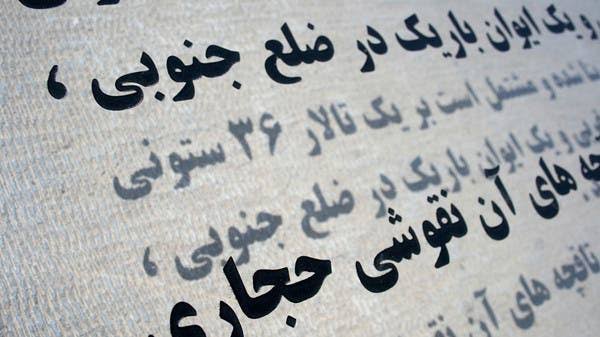 و یک ایوان باریک در ضلع جنوبی ،
شده و مشتمل است بر یک تالار ۳۶ ستونی
و یک ایوان باریک در ضلع جنوبی ،
های آن نقوشی حجاری
طاقچه های آن